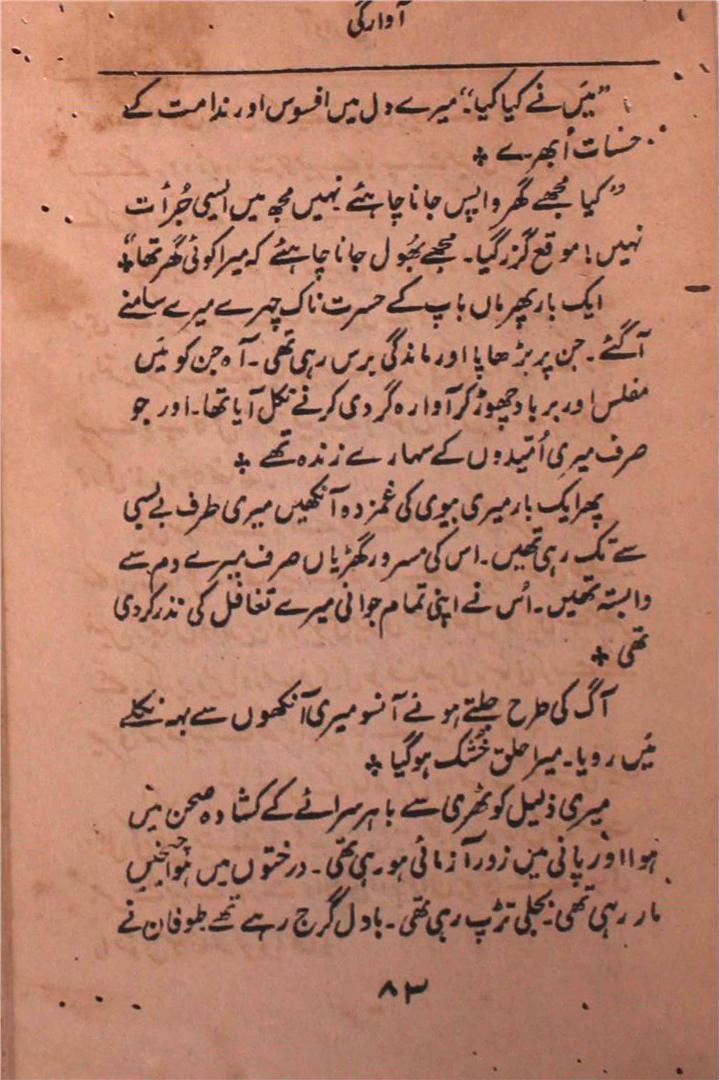 آوارگی
”میَں نے کیا کیا“ میرے دل میں افسوس اور ندامت کے
حسّات اُبھرے ٭
”کیا مجھے گھر واپس جانا چاہئے نہیں مجھ میں ایسی جُرأت
نہیں! موقع گزر گیا۔ مجھے بھُول جانا چاہئے کہ میرا کوئی گھر تھا“٭
ایک بار پھر ماں باپ کے حسرت ناک چہرے میرے سامنے
آگئے۔ جن پر بڑھاپا اور ماندگی برس رہی تھی۔ آہ جن کو میَں
مفلس اور برباد چھوڑ کر آوارہ گردی کرنے نکل آیا تھا۔ اور جو
صرف میری اُمّیدوں کے سہارے زندہ تھے ٭
پھر ایک بار میری بیوی کی غمزدہ آنکھیں میری طرف بے بسی
سے تک رہی تھیں۔ اس کی مسرور گھڑیاں صرف میرے دم سے
وابستہ تھیں۔ اُس نے اپنی تمام جوانی میرے تغافل کی نذر کر دی
تھی ٭
آگ کی طرح جلتے ہوئے آنسو میری آنکھوں سے بہہ نکلے
میَں رویا۔ میرا حلق خُشک ہو گیا ٭
میری ذلیل کوٹھری سے باہر سرائے کے کشادہ صحن میں
ہوا اور پانی میں زور آزمائی ہو رہی تھی۔ درختوں میں ہوا چیخیں
مار رہی تھی بجلی تڑپ رہی تھی۔ بادل گرج رہے تھے طوفان نے
۸۳